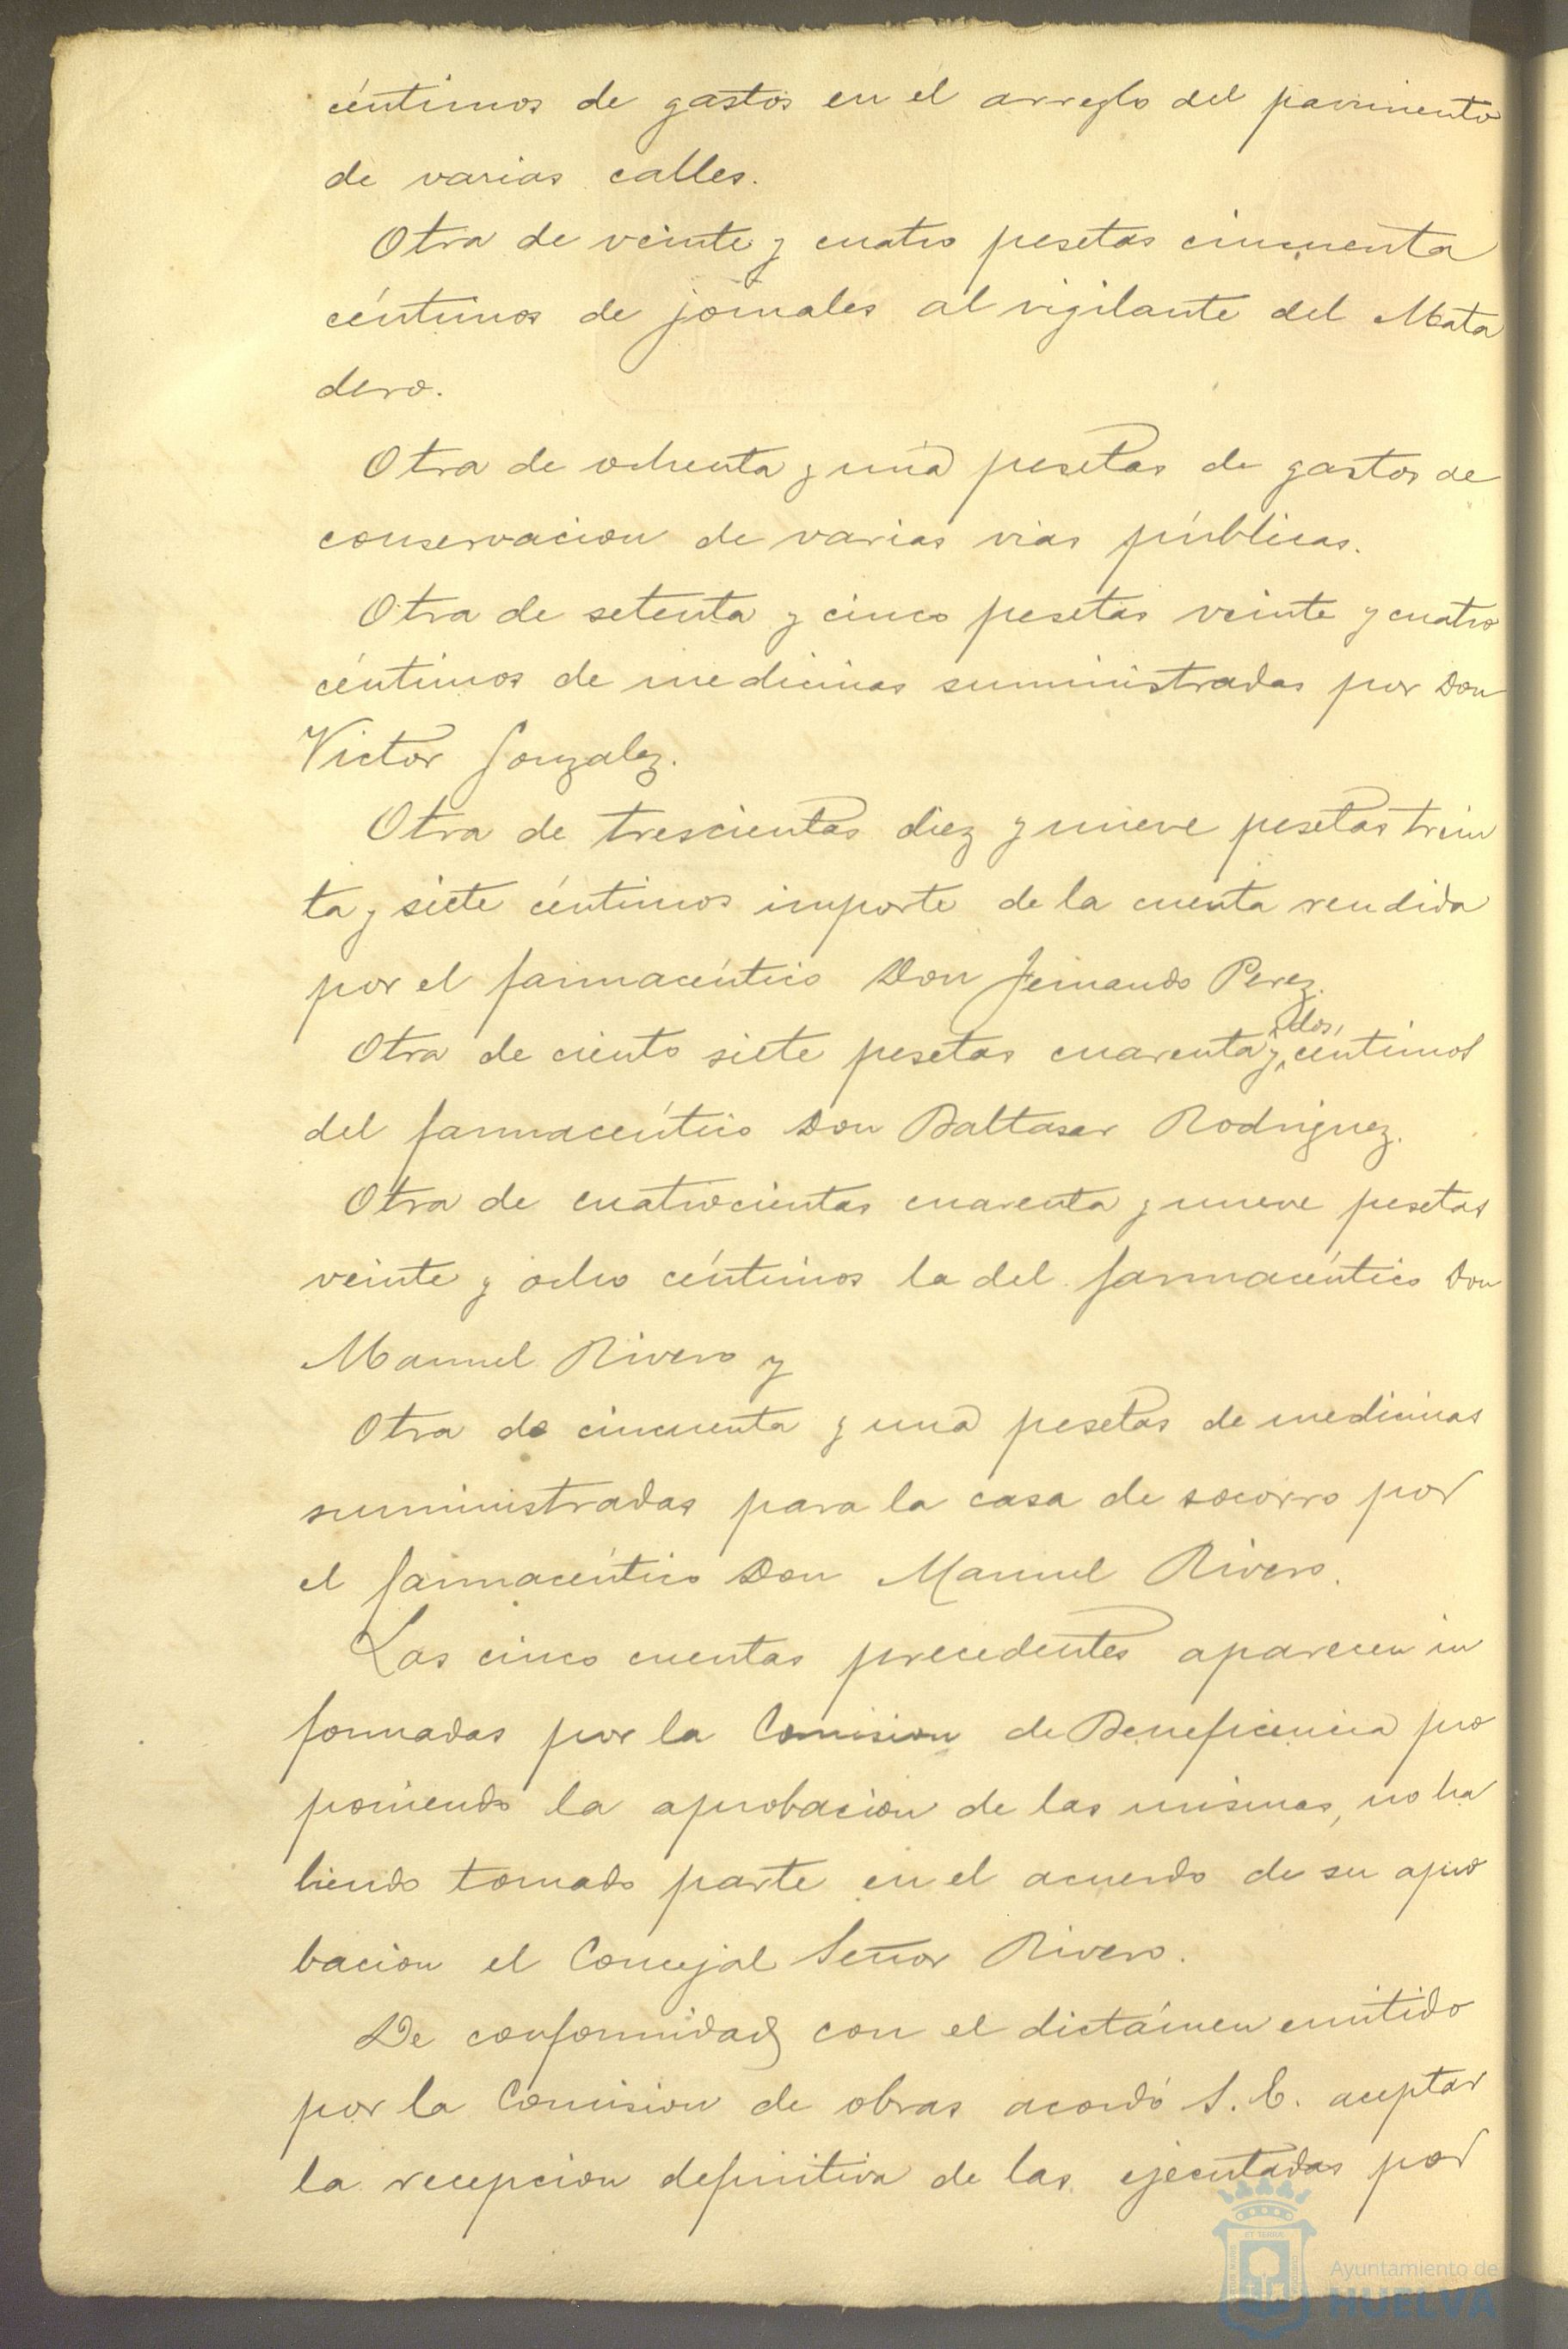 céntimos de gastos en el arreglo del pavimento
de varias calles.
Otra de veinte y cuatro pesetas cincuenta
céntimos de jornales al vigilante del Mata
dero.
Otra de ochenta y una pesetas de gastos de
conservacion de varias vias públicas.
Otra de setenta y cinco pesetas veinte y cuatro
céntimos de medicinas suministradas por Don
Victor Gonzalez.
Otra de trescientas diez y nueve pesetas trein
ta y siete céntimos importe de la cuenta rendida
por el farmacéutico Don Fernando Perez.
Otra de ciento siete pesetas cuarenta y dos céntimos
del farmacéutico Don Baltasar Rodriguez.
Otra de cuatrocientas cuarenta y nueve pesetas
veinte y ocho céntimos la del farmacéutico Don
Manuel Rivero y
Otra de cincuenta y una pesetas de medicinas
suministradas para la casa de socorro por
el farmacéutico Don Manuel Rivero.
Las cinco cuentas precedentes aparecen in
formadas por la Comision de Beneficencia pro
poniendo la aprobacion de las mismas, no ha
biendo tomado parte en el acuerdo de su apro
bacion el Concejal Señor Rivero.
De conformidad con el dictámen emitido
por la Comision de obras acordó S. E. aceptar
la recepcion definitiva de las ejecutadas por
Ayuntamiento de
HUELVA